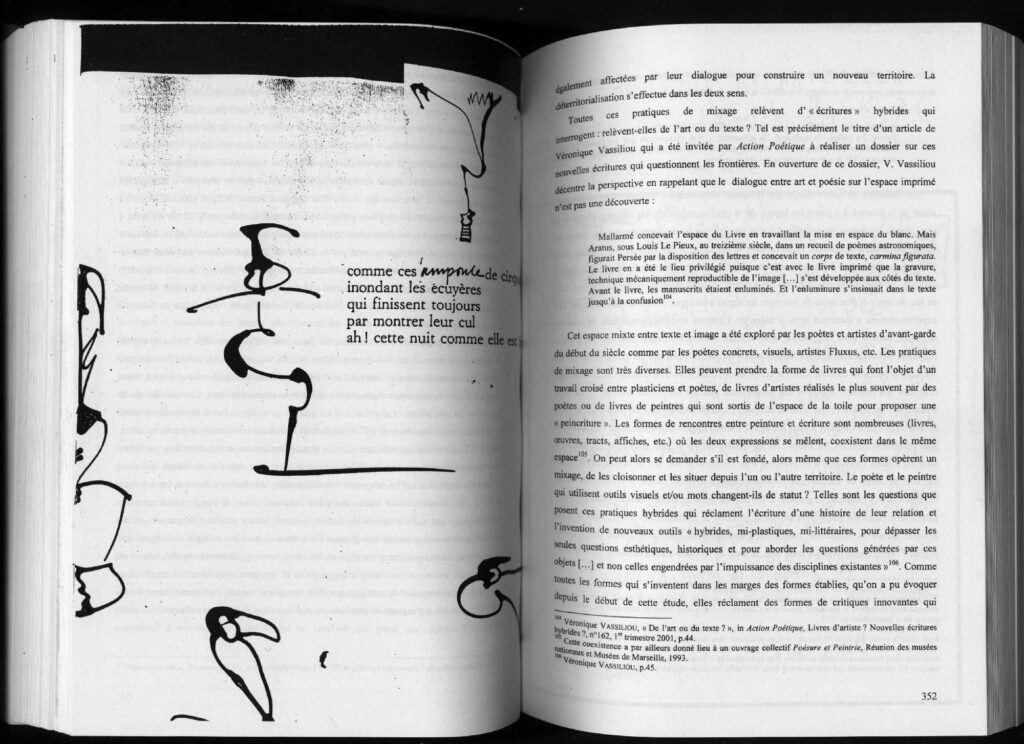 comme ces ampoule de cirque
inondant les écuyères
qui finissent toujours
par montrer leur cul
ah ! cette nuit comme elle est
également affectées par leur dialogue pour construire un nouveau territoire. La
déterritorialisation s'effectue dans les deux sens.
Toutes ces pratiques de mixage relèvent d' « écritures » hybrides qui
interrogent : relèvent-elles de l'art ou du texte ? Tel est précisément le titre d'un article de
Véronique Vassiliou qui a été invitée par Action Poétique à réaliser un dossier sur ces
nouvelles écritures qui questionnent les frontières. En ouverture de ce dossier, V. Vassiliou
décentre la perspective en rappelant que le dialogue entre art et poésie sur l'espace imprimé
n'est pas une découverte :
Mallarmé concevait l'espace du Livre en travaillant la mise en espace du blanc. Mais
Aratus, sous Louis Le Pieux, au treizième siècle, dans un recueil de poèmes astronomiques,
figurait Persée par la disposition des lettres et concevait un corps de texte, carmina figurata.
Le livre en a été le lieu privilégié puisque c'est avec le livre imprimé que la gravure,
technique mécaniquement reproductible de l'image [...] s'est développée aux côtés du texte.
Avant le livre, les manuscrits étaient enluminés. Et l'enluminure s'insinuait dans le texte
jusqu'à la confusion104.
Cet espace mixte entre texte et image a été exploré par les poètes et artistes d'avant-garde
du début du siècle comme par les poètes concrets, visuels, artistes Fluxus, etc. Les pratiques
de mixage sont très diverses. Elles peuvent prendre la forme de livres qui font l'objet d'un
travail croisé entre plasticiens et poètes, de livres d'artistes réalisés le plus souvent par des
poètes ou de livres de peintres qui sont sortis de l'espace de la toile pour proposer une
« peincriture ». Les formes de rencontres entre peinture et écriture sont nombreuses (livres,
œuvres, tracts, affiches, etc.) où les deux expressions se mêlent, coexistent dans le même
espace105. On peut alors se demander s'il est fondé, alors même que ces formes opèrent un
mixage, de les cloisonner et les situer depuis l'un ou l'autre territoire. Le poète et le peintre
qui utilisent outils visuels et/ou mots changent-ils de statut ? Telles sont les questions que
posent ces pratiques hybrides qui réclament l'écriture d'une histoire de leur relation et
l'invention de nouveaux outils « hybrides, mi-plastiques, mi-littéraires, pour dépasser les
seules questions esthétiques, historiques et pour aborder les questions générées par ces
objets [...] et non celles engendrées par l'impuissance des disciplines existantes »106. Comme
toutes les formes qui s'inventent dans les marges des formes établies, qu'on a pu évoquer
depuis le début de cette étude, elles réclament des formes de critiques innovantes qui
104 Véronique VASSILIOU, « De l'art ou du texte ? », in Action Poétique, Livres d'artiste ? Nouvelles écritures
hybrides ?, n°162, 1er trimestre 2001, p.44.
105 Cette coexistence a par ailleurs donné lieu à un ouvrage collectif Poésure et Peintrie, Réunion des musées
nationaux et Musées de Marseille, 1993.
106 Véronique VASSILIOU, p.45.
352